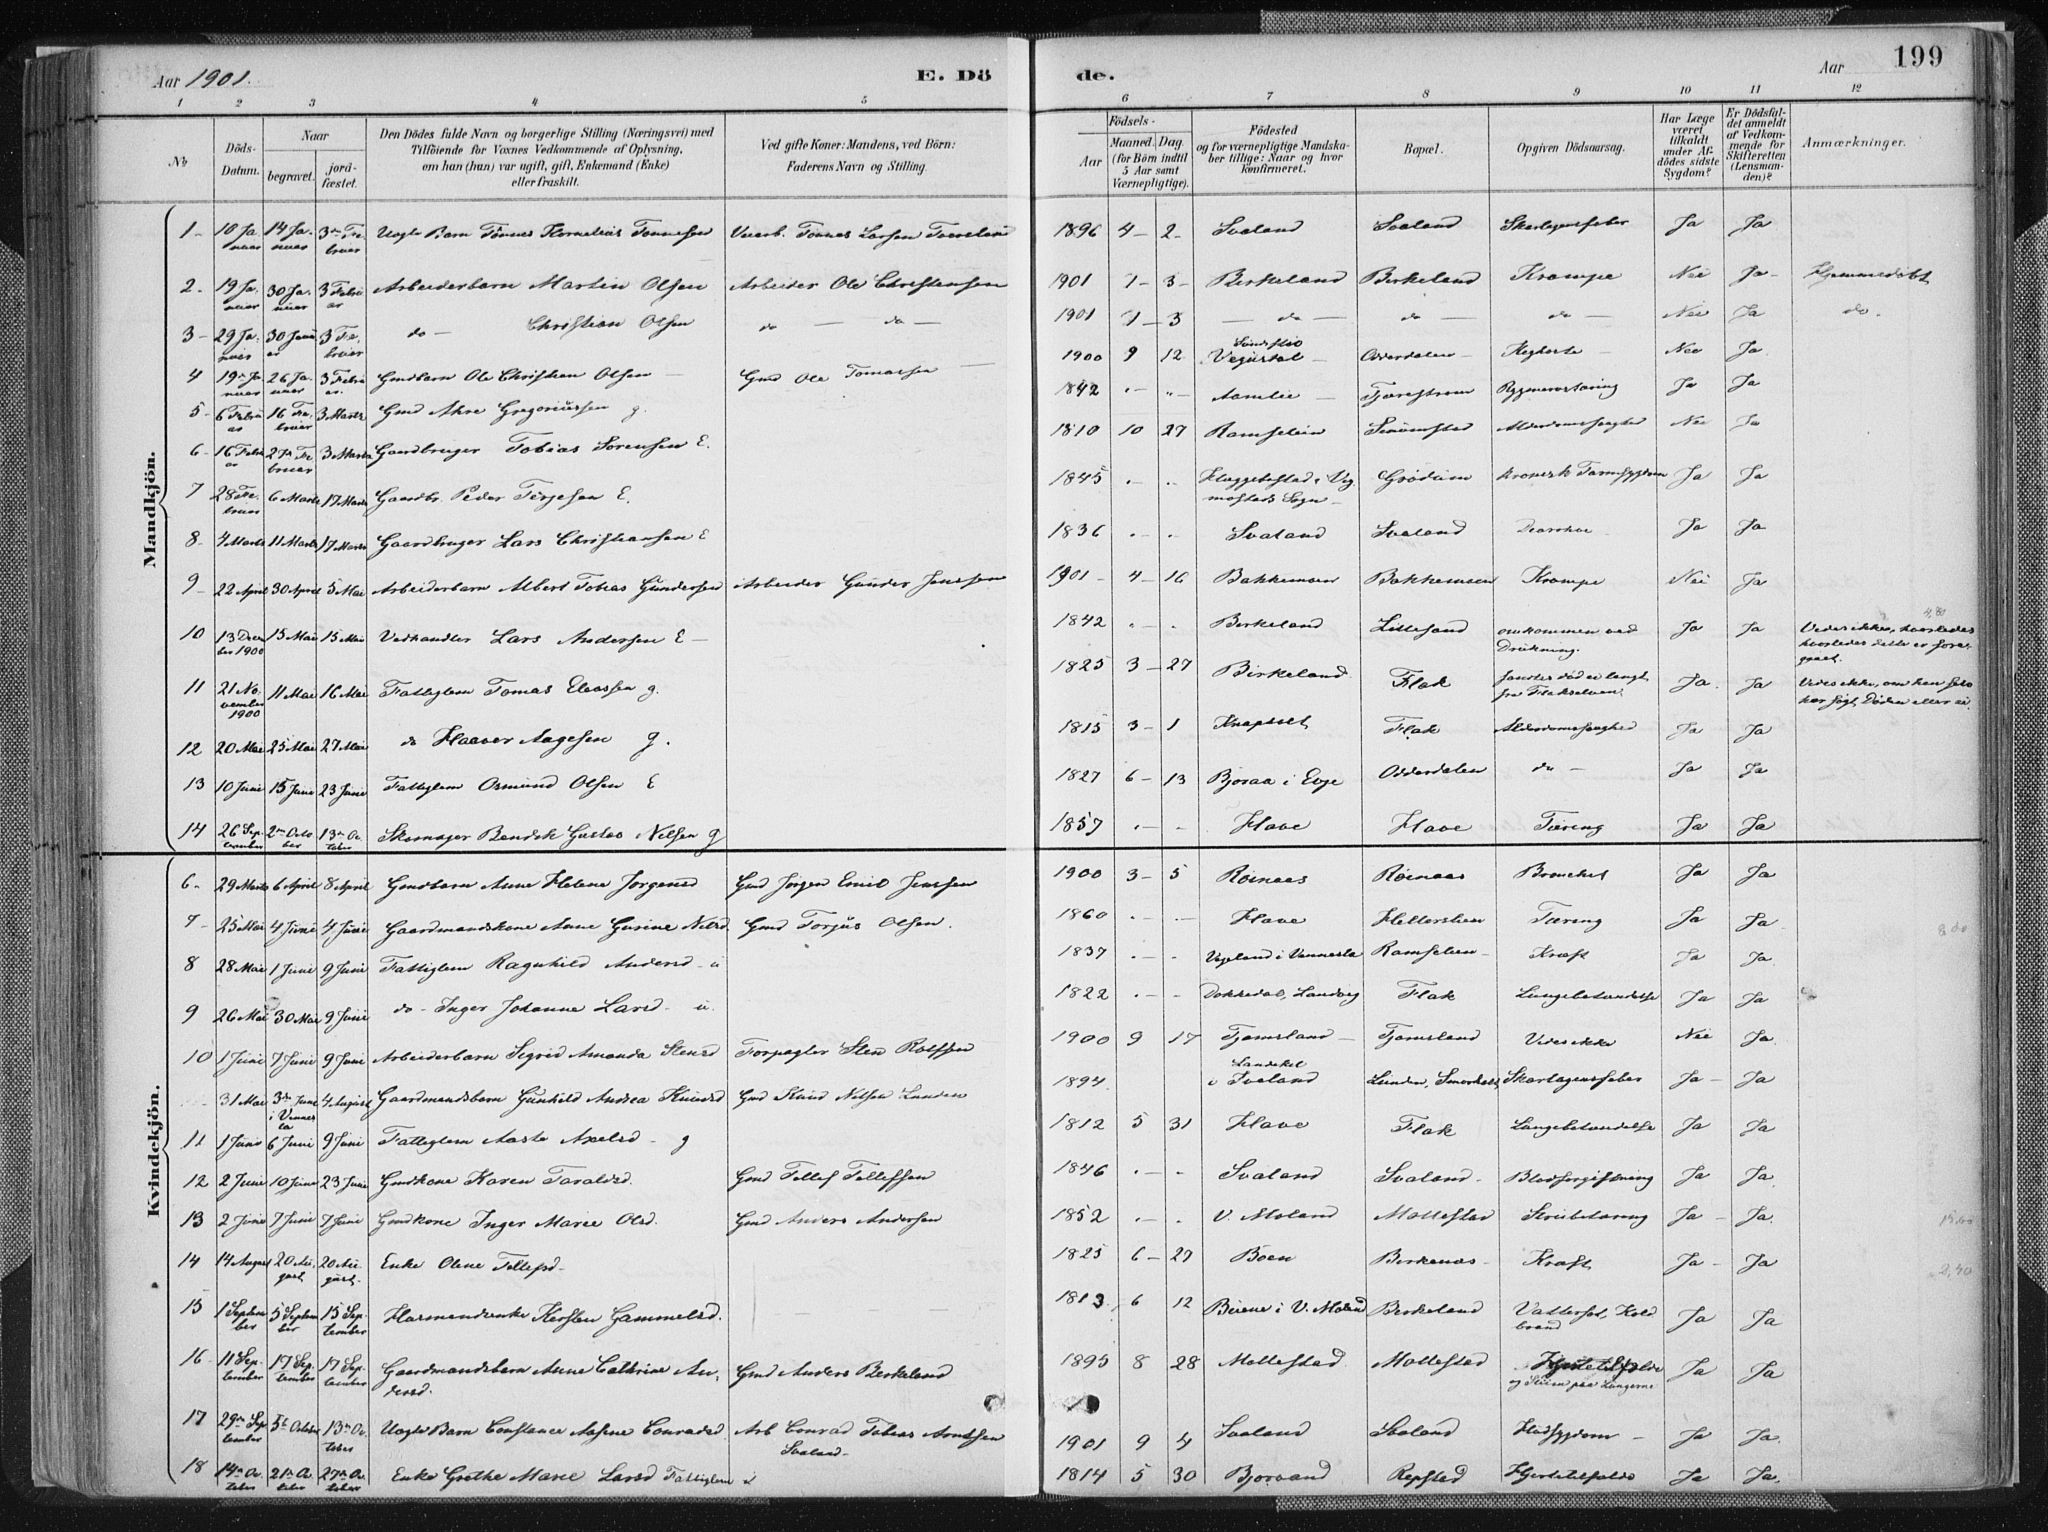 Aar 1901.
E. Dö
de.
Aar
199
1 2 3 4 5 6 7 8 9 10 11 12
№
Döds-Datum.
Naar
begravet.
jordfæstet.
Den Dödes fulde Navn og borgerlige Stilling (Næringsvei) med
Tilföiende for Voxnes Vedkommende af Oplysning,
om han (hun) var ugift, gift, Enkemand (Enke)
eller fraskilt.
Ved gifte Koner: Mandens, ved Börn:
Faderens Navn og Stilling.
Födsels-
Aar
Maaned. Dag.
(for Börn indtil
5 Aar samt
Værnepligtige).
Födested
og for værnepligtige Mandska-
ber tillige: Naar og hvor
konfirmeret.
Bopæl.
Opgiven Dödsaarsag.
Har Læge
været
tilkaldt
under Af-
dödes sidste
Sygdom?
Er Dödsfal-
det anmeldt
af Vedkom-
mende for
Skifteretten
(Lensman-
den)?
Anmærkninger.
Mandkjön.
1 - 10 Januar 14 Januar 3die Februar Uægte Barn Tönnes Kornelius Tönnesen 1896 4 - 2 - Svaland Svaland Skarlagensfeber Ja Ja
2 - 19 Januar 30 Januar 3 Februar Arbeiderbarn Martin Olsen Arbeider Ole Christensen 1901 1 - 3 - Birkeland Birkeland Krampe Nei Ja - Hjemmedøbt
3 - 29 Januar 30 Januar 3 Februar do - Christian Olsen do - do - 1901 1 - 3 - do - do - do - Nei Ja do.
4 19de Januar 26 Januar 3 Februar Gmdbarn Ole Christian Olsen - Gmd Ole Tomassen 1900 9 12 Vegüstøl - Oddersdalen - Kighoste - Nei Ja
5 - 6 Februar 16 Februar 3 Marts Gmd Akre Gregoriussen g. 1842 Aamlie - Rygmarvstæring Ja Ja
6 - 16 Februar 27de Februar 3 Marts Gaardbruger Tobias Sørensen E. 1810 10 27 Ramselien Alderdomssvaghed Nei Ja
7 28 Februar 6 Marts 17 Marts Gaardbr. Peder Terjesen E. 1845 Grødum kronisk Tarmsygdom Ja Ja
8 - 4 Marts 11 Marts 17 Marts Gaardbruger Lars Christiansen E 1836 Svaland Svaland Ja Ja
9 - 22 April 30 April 5 Mai Arbeiderbarn Albert Tobias Gundersen Arbeider Gunder Jensen 1901 - 4 - 16 Bakkemoen Bakkemoen Krampe Nei Ja
10 13 December 1900 15 Mai 15 Mai Vedhandler Lars Andersen E - 1842 Birkeland Lillesand omkommen ved Drukning. Ja Ja Vides ikke,
hvorledes dette er foregaaet.
11 21 November 1900 11 Mai 16 Mai Fattiglem Tomas Eliassen g. 1825 3 - 27 Birkeland Flak fundet død ei langt fra Flakselven. Ja. Ja Vides ikke, om han selv har søgt Døden eller ei.
12 20 Mai 25 Mai 27 Mai do Haaver Aagesen g. 1815 3 - 1 Knapsett Flak Alderdomssvaghed Ja Ja
13 10 Juni 15 Juni 23 Juni Fattiglem Osmund Olsen E 1827 6 - 13 Bjoraa i Evje Oddersdalen do - Ja Ja
14 26 September 2den October 13de October Skomager Bendik Gustav Nilsen g 1857 Have Have Tæring Ja Ja
Kvindekjön.
6 - 29 Marts 6 April 8 April Gmdbarn Anne Helene Jørgensd Gmd Jørgen Emil Jenssen 1900 3 - 5 Røinaas Røinaas Bronchit Ja Ja
7 - 25 Mai 4 Juni 4 Juni Gaardmandskone Anne Gurine Nilsd. Gmd Torjus Olsen. 1860 Have Tæring Ja Ja
8 28 Mai 1 Juni 9 Juni Fattiglem Ragnhild Andersd - u 1837 Vigeland i Vennesla Ramselien - Kræft Ja Ja
9 26 Mai 30 Mai 9 Juni do - Inger Johanne Larsd - u. 1822 Dokkedal, Landvig Flak Lungebetændelse Ja Ja
10 1 Juni 7 Juni 9 Juni Arbeiderbarn Sigrid Amanda Stensd Forpagter Sten Rolfsen 1900 9 17 Tjomsland - Tjomsland Vides ikke Nei Ja.
31 Mai 3die Juni i Vennesla 4 August Gaardmandsbarn Gunhild Andrea Knudsd Gmd Knud Nilsen Lunden 1894. i Iveland Lunden, Skarlagensfeber Ja - Ja
11 1 Juni 6 Juni 9 Juni Fattiglem Aaste Axelsd - g 1812 5 31 Have Flak Lungebetændelse Ja Ja
12 2 Juni 10 Juni 23 Juni Gmdkone Karen Taraldsd. Gmd Tellef Tellefsen 1846 Svaland Svaland - Blodforgiftning Ja Ja
13 2 Juni 7 Juni 7 Juni Gmdkone Inger Marie Olsd. Gmd Anders Andersen 1852 V. Moland Mollestad Strubetæring Ja - Ja.
14 14 August 20 August 20 August Enke Olene Tellefsd - 1825 6 - 27 Boen Birkenæs - Kræft Ja - Ja
15 1 September 5 September 15 September Kersten Gammelsd. 1813 6 12 i V. Moland Birkeland Vattersot, Koldbrand Ja Ja
16 - 11 September 17 September 17 September Gaardmandsbarn Anne Cathrine Andersd. Gmd Anders Birkeland 1895 8 28 Mollestad Mollestad Hjertelidelse
og Stüen paa Lungerne Ja Ja
17 29de September 5te October 13de October Uægte Barn Constance Aasene Conradsd. Arb Conrad Tobias Arntsen
Svaland - 1901 9 4 Svaland Svaland Hudsygdom - Ja Ja.
18 14de October 21de October 27de October Enke Grethe Marie Larsd Fattiglem 1814 5 30 Bjorvand Repstad Hjertelidelse Ja Ja.